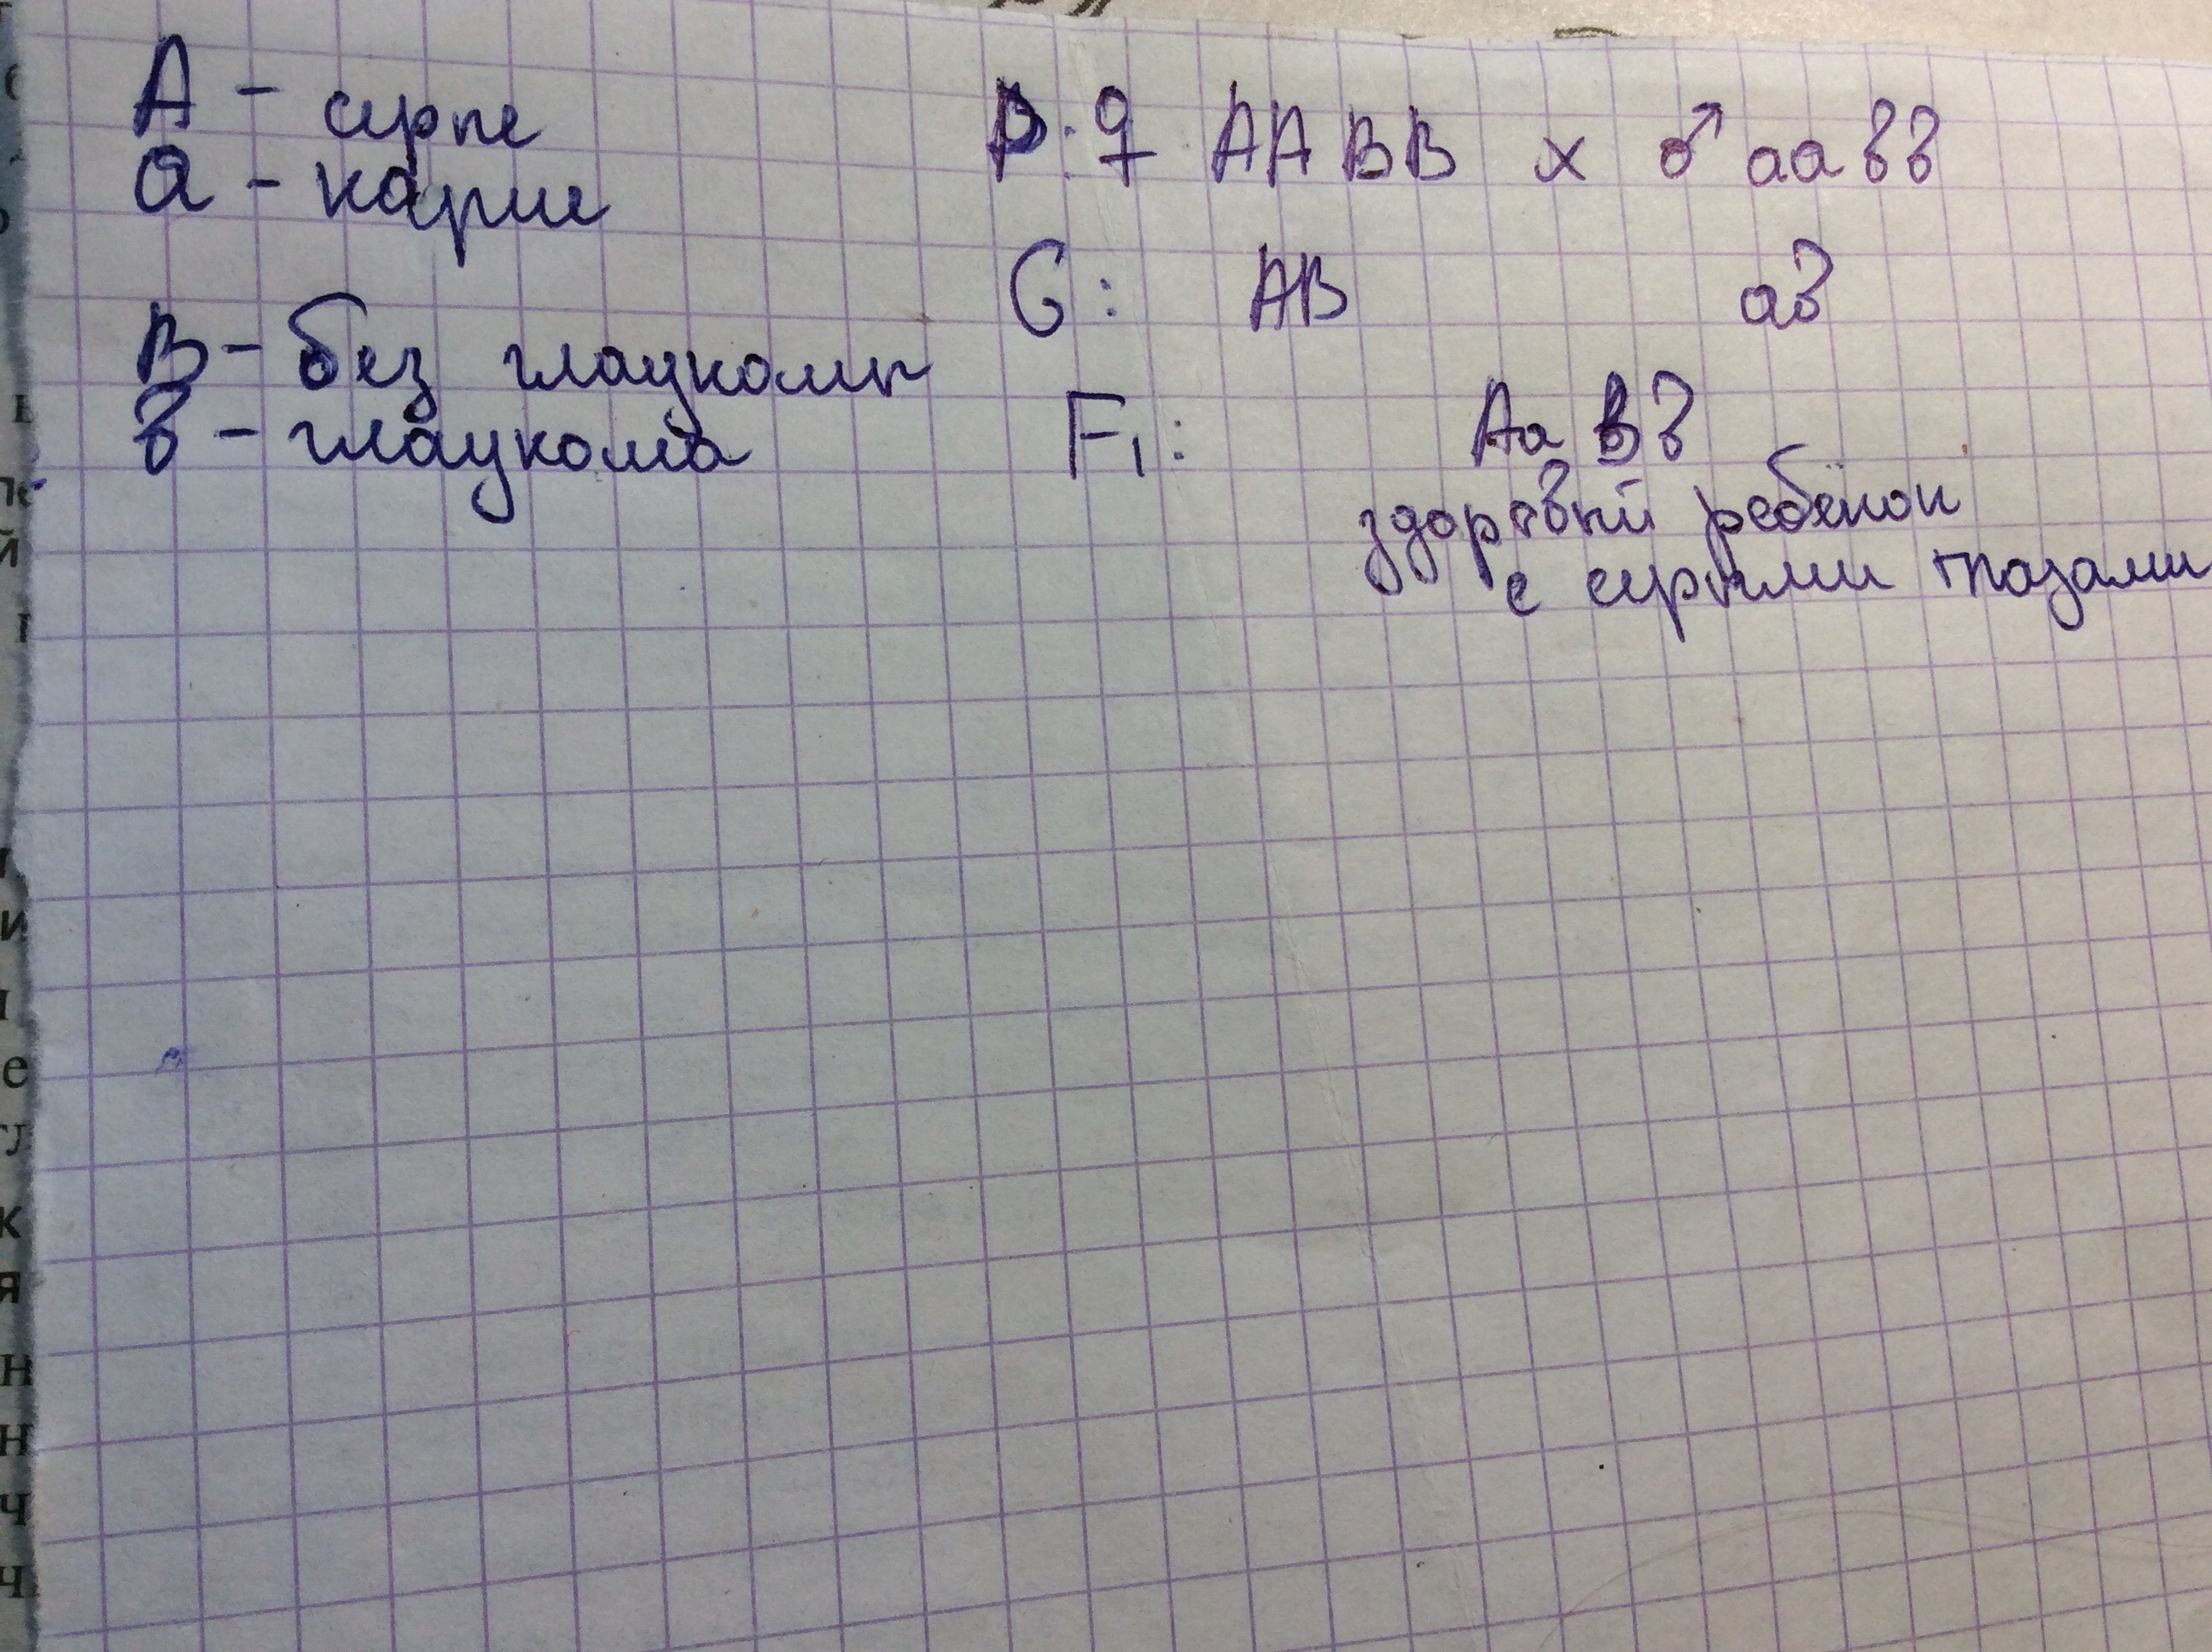 А - серые
а - карие
В - без глаукомы
в - глаукома
P: ♀ АА ВВ х ♂ аа вв
G: АВ ав
F₁: Аа Вв
здоровый ребёнок
с серыми глазами